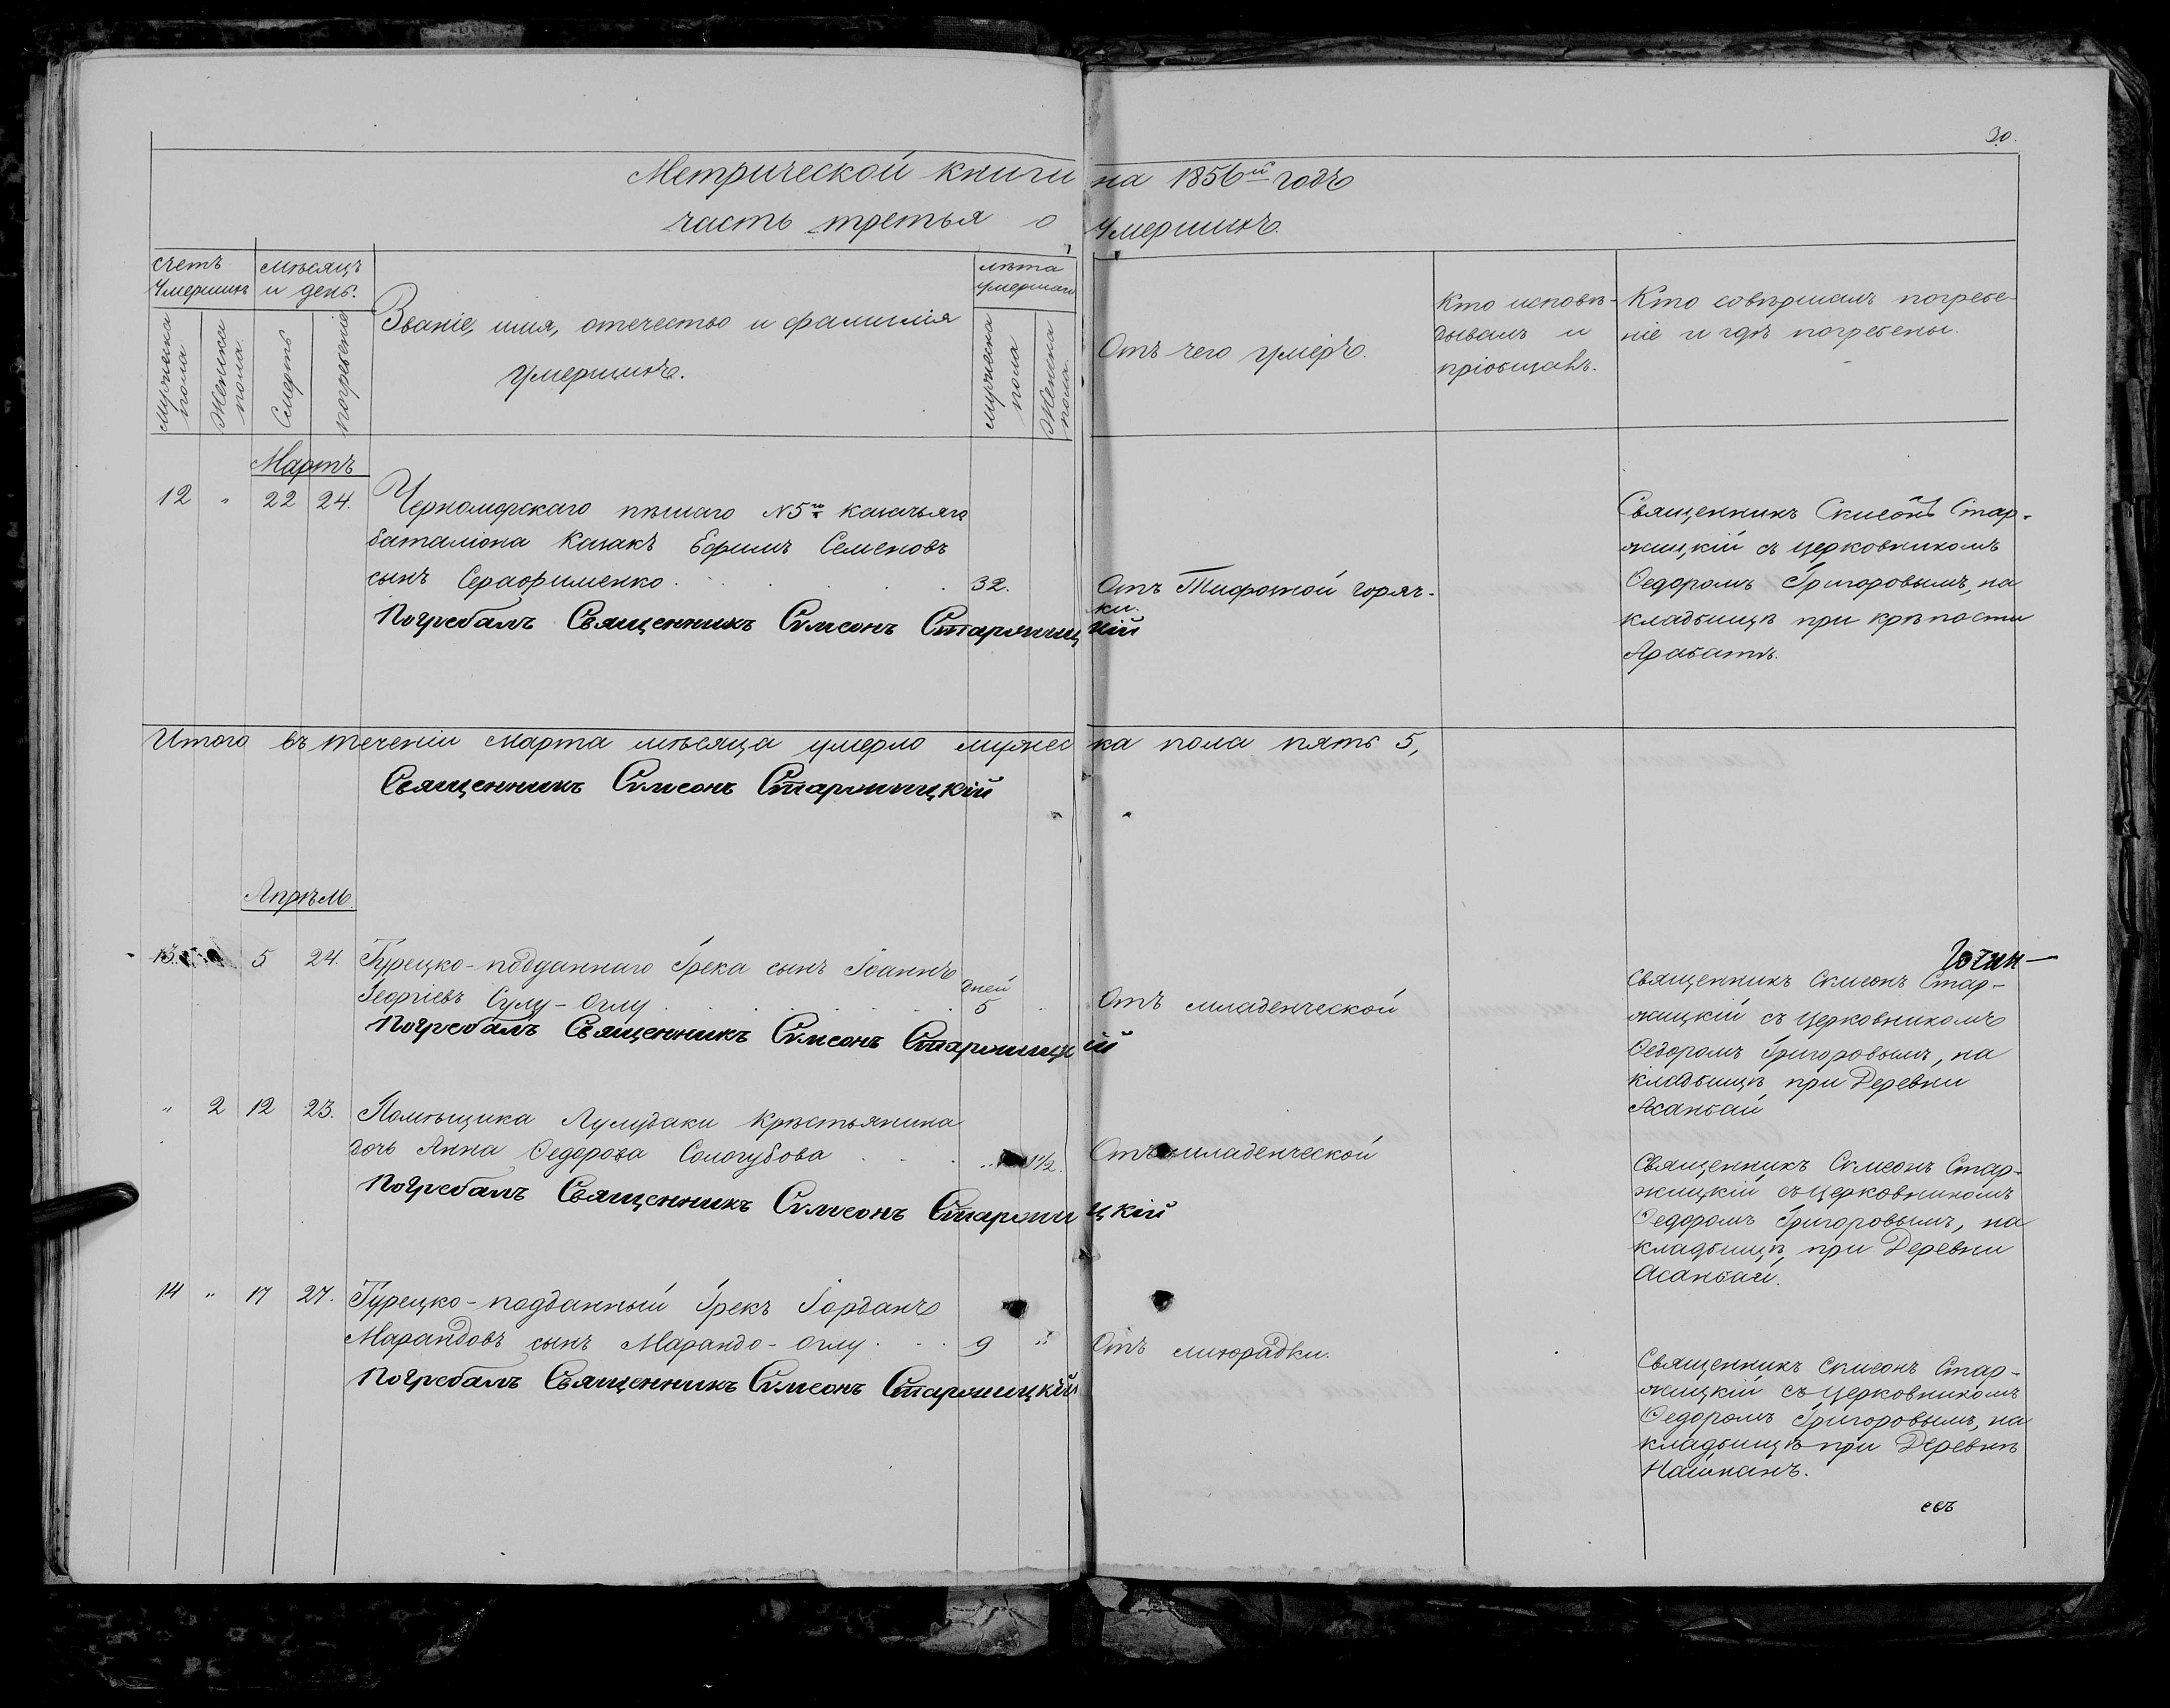 30.
Метрической книги на 1856й годъ
часть третья о умершихъ.
счетъ умершихъ
мѣсяцъ и день.
Званіе, имя, отечество и фамилія
умершихъ.
лѣта умершаго
Отъ чего умеръ.
Кто исповѣ-
дывалъ и
пріобщалъ.
Кто совершалъ погребе-
ніе и гдѣ погребены.
мужеска пола
Женска пола.
Смерть
погребеніе
мужеска пола
Женска пола.
Мартъ
12 " 22 24. Черноморскаго пѣшаго №5го казачьяго
баталіона Казакъ Ефимъ Семеновъ
сынъ Серафименко 32. Отъ Тифозной горяч-
ки.
Погребалъ Священникъ Симеонъ Старжицкій
Священникъ Симеонъ Стар-
жицкій съ церковникомъ
Ѳедоромъ Григоровымъ, на
кладбищѣ при крѣпости
Арабатѣ.
Итого въ теченіи марта мѣсяца умерло мужеска пола пять 5,
Священникъ Симеонъ Старжицкій
Апрѣль.
13. 5 24. Турецко-подданнаго Грека сынъ Іоаннъ
Георгіевъ Сулу-Оглу дней 5 Отъ младенческой
Погребалъ Священникъ Симеонъ Старжицкій
Священникъ Симеонъ Стар-
жицкій съ церковникомъ
Ѳедоромъ Григоровымъ, на
кладбищѣ при Деревни
Асанбай
" 2 12 23. Помѣщика Лулудаки Крѣстьянина
дочь Анна Ѳедорова Сологубова 1½. Отъ младенческой
Погребалъ Священникъ Симеонъ Старжицкій
Священникъ Симеонъ Стар-
жицкій съ церковникомъ
Ѳедоромъ Григоровымъ, на
кладбищѣ, при Деревни
Асанбай.
14 " 17 27. Турецко-подданный Грекъ Іорданъ
Марандовъ сынъ Марандо-Оглу 9 " Отъ лихорадки.
Погребалъ Священникъ Симеонъ Старжицкій
Священникъ Симеонъ Стар-
жицкій съ церковникомъ
Ѳедоромъ Григоровымъ, на
кладбищѣ при Деревнѣ